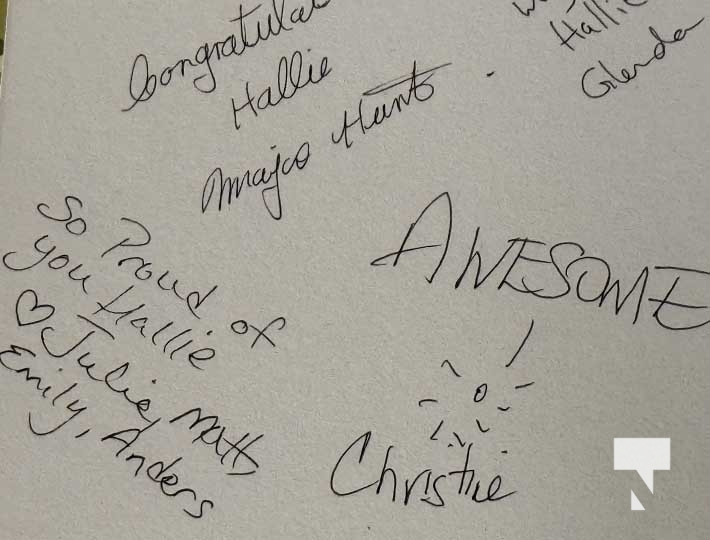 Congratulat
Hallie
Hunt
Hallie
Glenda
So Proud of
you Hallie
♡ Julie, Matt,
Emily, Anders
AWESOME
Christie